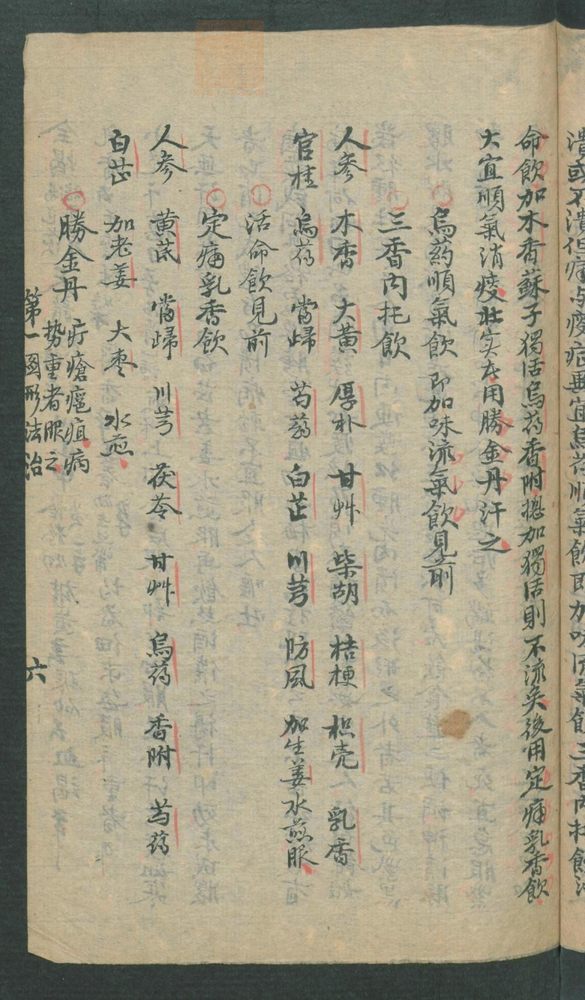 潰或不潰但痛点瘦症再宜烏药順氣飲即加味流氣飲三香内托飲活
命飲加木香蘇子獨活烏药香附揔加獨活則不流矣後用定痛乳香飲
大宜順氣消痰壯实者用勝金丹汗之
烏药順氣飲 即加味流氣飲見前
三香内托飲
人參 木香 大黄 厚朴 甘艸 柴胡 桔梗 枳壳 乳香
官桂 烏药 當歸 芍药 白芷 川芎 防風 加生姜水煎服
活命飲見前
定痛乳香飲
人參 黄芪 當歸 川芎 茯苓 甘艸 烏药 香附 芍药
白芷 加老姜 大棗 水煎
勝金丹 疔瘡瘟疽病
势重者服之
第一圖形法治 六